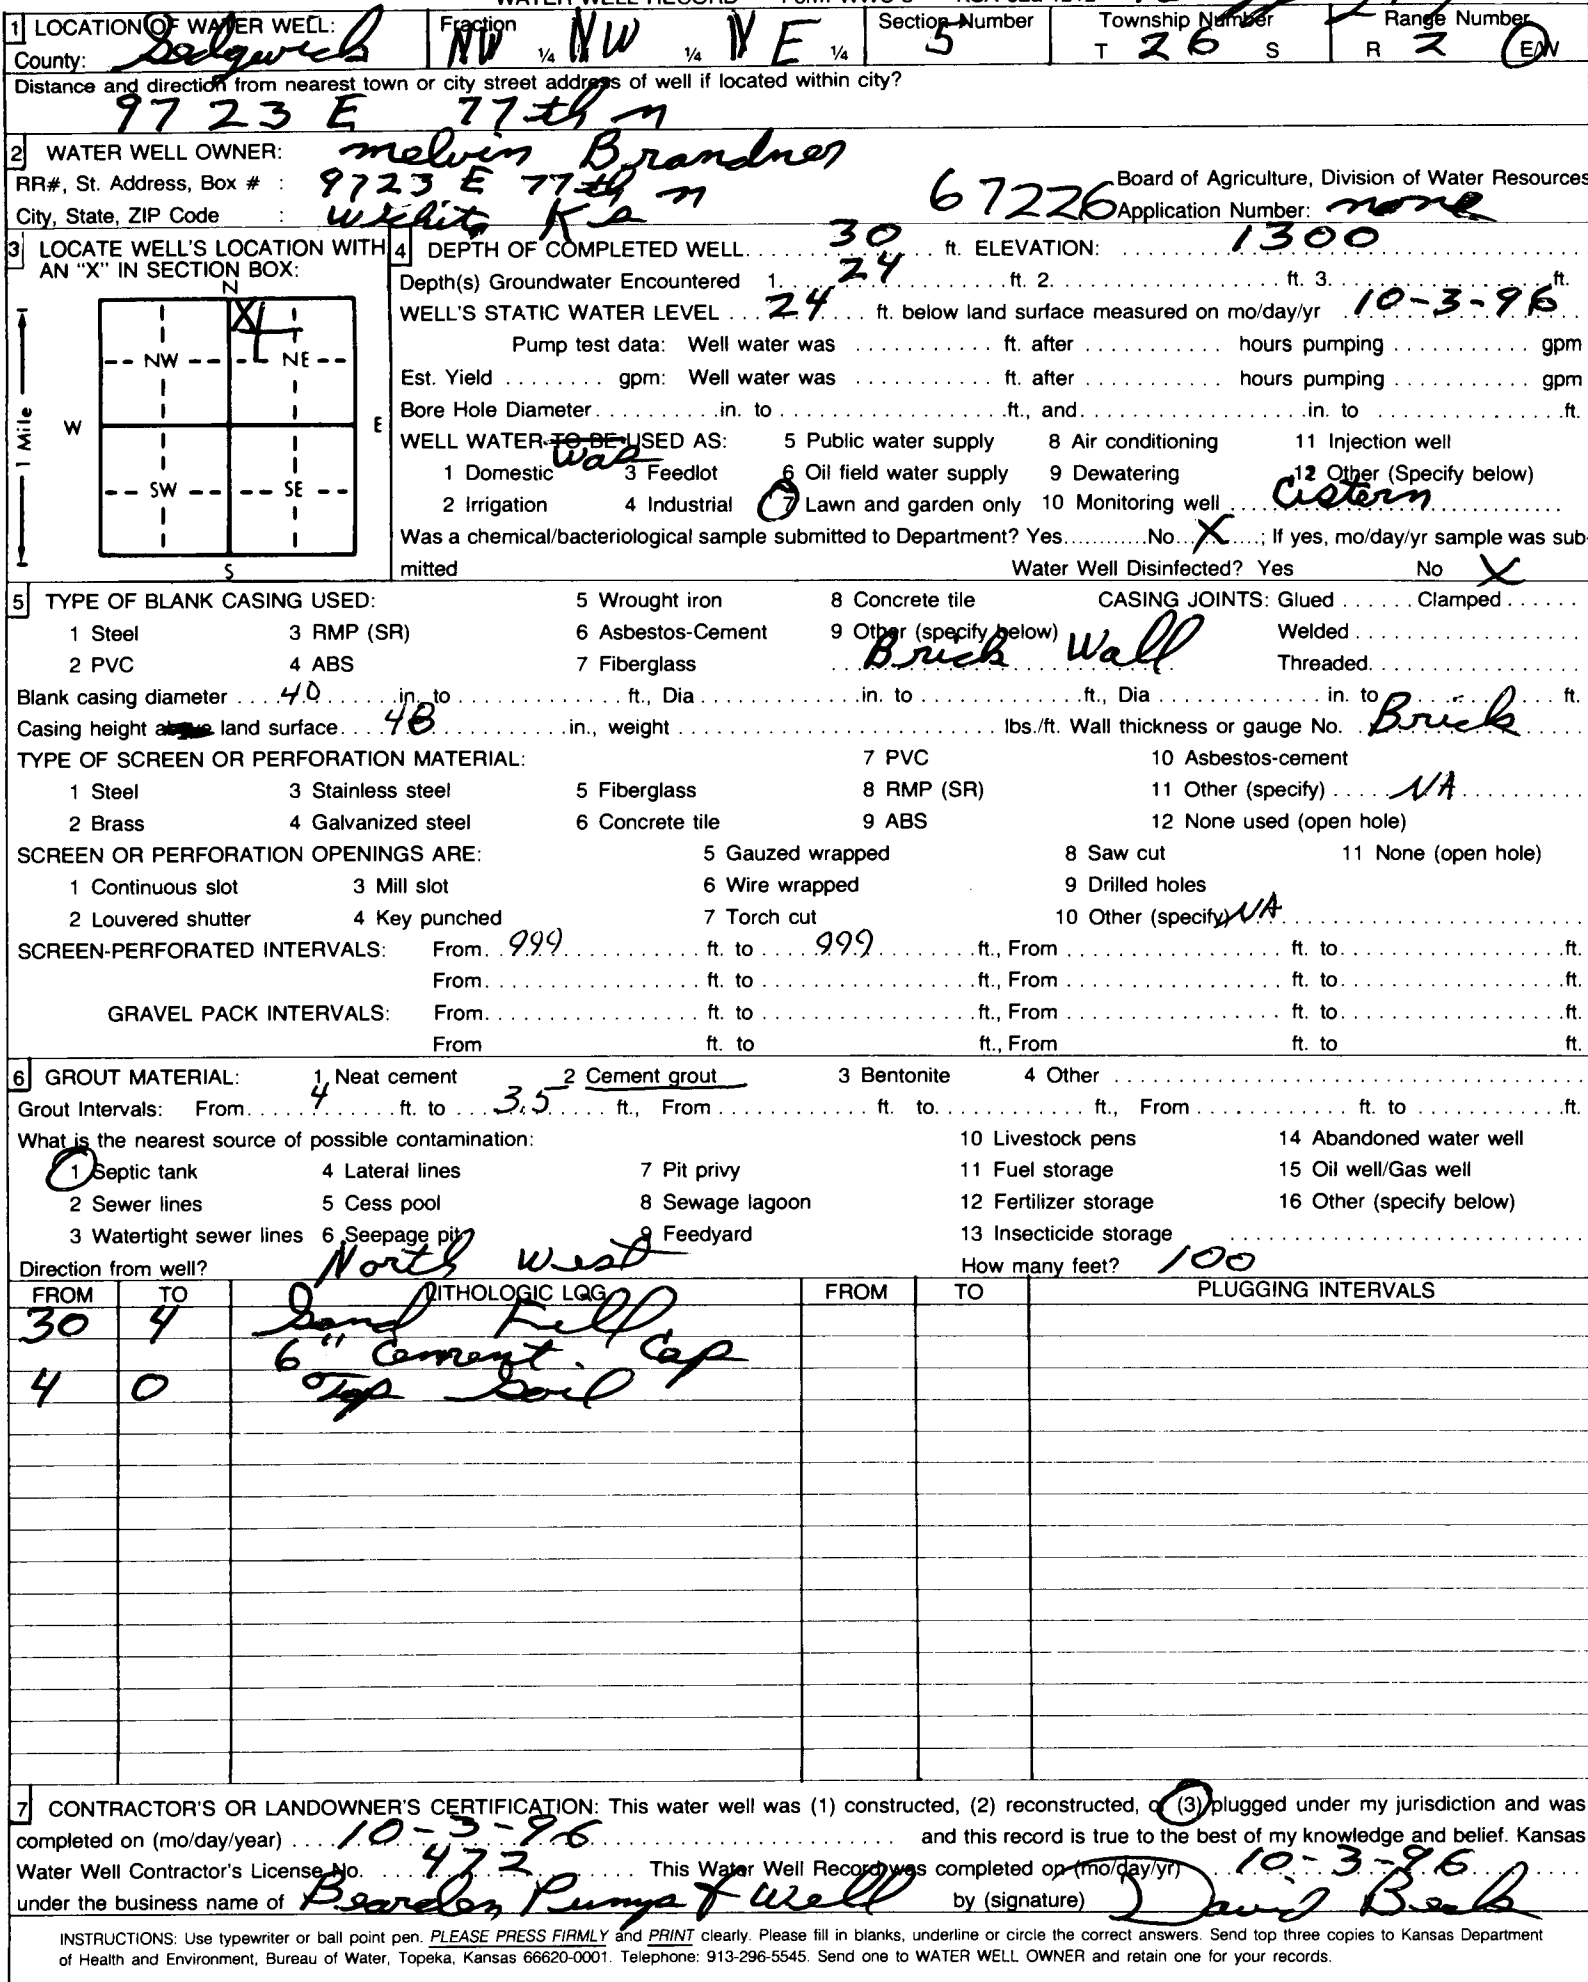 WATER WELL RECORD Form WWC-5 KSA 82a-1212
1 LOCATION OF WATER WELL: Fraction Section Number Township Number Range Number
County: Sedgwick NW ¼ NW ¼ NE ¼ 5 T 26 S R 2 E/W
Distance and direction from nearest town or city street address of well if located within city?
9723 E 77th n
2 WATER WELL OWNER: melvin Brandner
RR#, St. Address, Box # : 9723 E 77th n Board of Agriculture, Division of Water Resources
City, State, ZIP Code : Wichita Ks 67226 Application Number: none
3 LOCATE WELL'S LOCATION WITH AN "X" IN SECTION BOX:
N
X
NW NE
W E
SW SE
S
1 Mile
4 DEPTH OF COMPLETED WELL 30 ft. ELEVATION: 1300
Depth(s) Groundwater Encountered 1. 24 ft. 2. ft. 3. ft.
WELL'S STATIC WATER LEVEL 24 ft. below land surface measured on mo/day/yr 10-3-96
Pump test data: Well water was ft. after hours pumping gpm
Est. Yield gpm: Well water was ft. after hours pumping gpm
Bore Hole Diameter in. to ft., and in. to ft.
WELL WATER TO BE USED AS: 5 Public water supply 8 Air conditioning 11 Injection well
was
1 Domestic 3 Feedlot 6 Oil field water supply 9 Dewatering 12 Other (Specify below)
2 Irrigation 4 Industrial 7 Lawn and garden only 10 Monitoring well Cistern
Was a chemical/bacteriological sample submitted to Department? Yes No X ; If yes, mo/day/yr sample was sub-
mitted Water Well Disinfected? Yes No X
5 TYPE OF BLANK CASING USED: 5 Wrought iron 8 Concrete tile CASING JOINTS: Glued Clamped
1 Steel 3 RMP (SR) 6 Asbestos-Cement 9 Other (specify below) Welded
2 PVC 4 ABS 7 Fiberglass Brick Wall Threaded
Blank casing diameter 40 in. to ft., Dia in. to ft., Dia in. to ft.
Casing height above land surface 48 in., weight lbs./ft. Wall thickness or gauge No. Brick
TYPE OF SCREEN OR PERFORATION MATERIAL: 7 PVC 10 Asbestos-cement
1 Steel 3 Stainless steel 5 Fiberglass 8 RMP (SR) 11 Other (specify) NA
2 Brass 4 Galvanized steel 6 Concrete tile 9 ABS 12 None used (open hole)
SCREEN OR PERFORATION OPENINGS ARE: 5 Gauzed wrapped 8 Saw cut 11 None (open hole)
1 Continuous slot 3 Mill slot 6 Wire wrapped 9 Drilled holes
2 Louvered shutter 4 Key punched 7 Torch cut 10 Other (specify) NA
SCREEN-PERFORATED INTERVALS: From 999 ft. to 999 ft., From ft. to ft.
From ft. to ft., From ft. to ft.
GRAVEL PACK INTERVALS: From ft. to ft., From ft. to ft.
From ft. to ft., From ft. to ft.
6 GROUT MATERIAL: 1 Neat cement 2 Cement grout 3 Bentonite 4 Other
Grout Intervals: From 4 ft. to 3.5 ft., From ft. to ft., From ft. to ft.
What is the nearest source of possible contamination: 10 Livestock pens 14 Abandoned water well
1 Septic tank 4 Lateral lines 7 Pit privy 11 Fuel storage 15 Oil well/Gas well
2 Sewer lines 5 Cess pool 8 Sewage lagoon 12 Fertilizer storage 16 Other (specify below)
3 Watertight sewer lines 6 Seepage pit 9 Feedyard 13 Insecticide storage
Direction from well? North West How many feet? 100
FROM TO LITHOLOGIC LOG FROM TO PLUGGING INTERVALS
30 4 Sand Fill
6" Cement Cap
4 0 Top Soil
7 CONTRACTOR'S OR LANDOWNER'S CERTIFICATION: This water well was (1) constructed, (2) reconstructed, or (3) plugged under my jurisdiction and was
completed on (mo/day/year) 10-3-96 and this record is true to the best of my knowledge and belief. Kansas
Water Well Contractor's License No. 472 This Water Well Record was completed on (mo/day/yr) 10-3-96
under the business name of Bearden Pumps & Well by (signature) David Beals
INSTRUCTIONS: Use typewriter or ball point pen. PLEASE PRESS FIRMLY and PRINT clearly. Please fill in blanks, underline or circle the correct answers. Send top three copies to Kansas Department
of Health and Environment, Bureau of Water, Topeka, Kansas 66620-0001. Telephone: 913-296-5545. Send one to WATER WELL OWNER and retain one for your records.